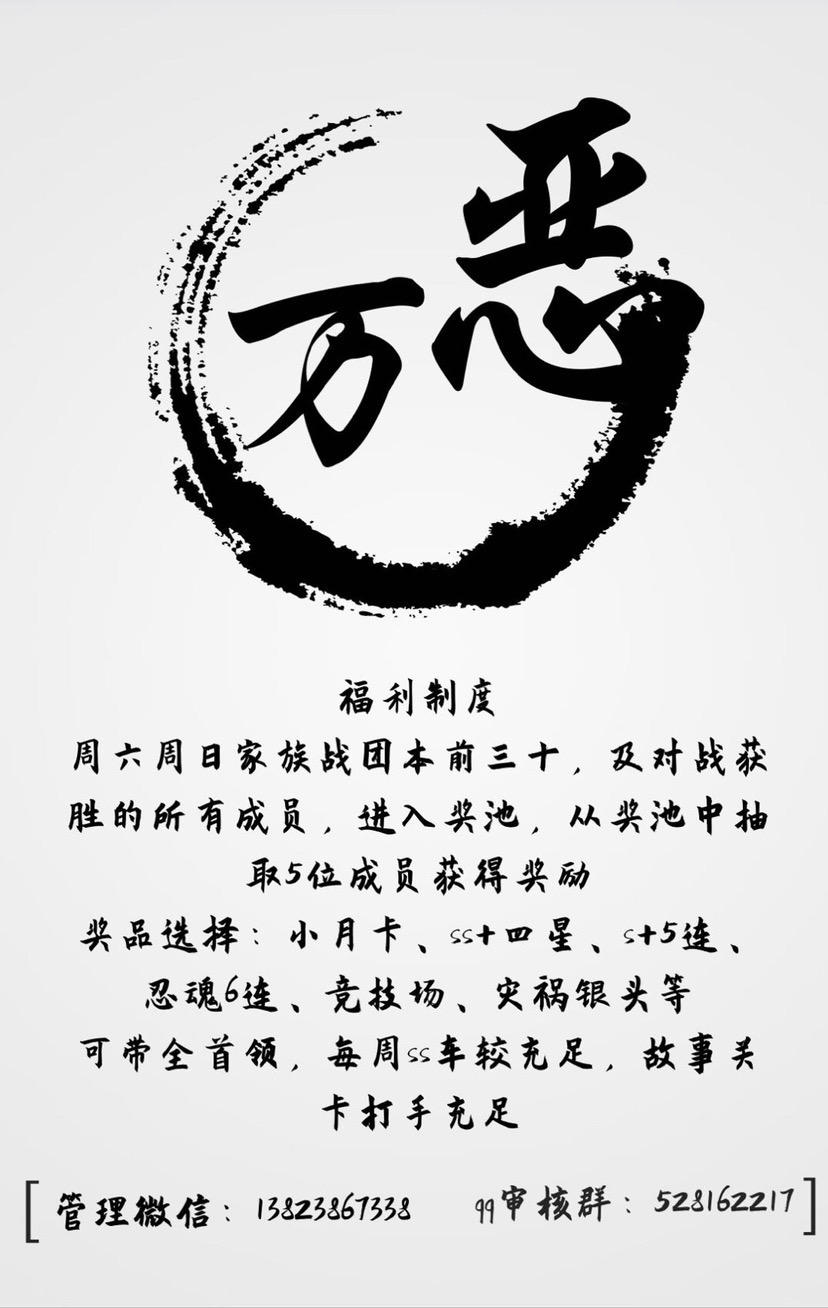 万恶
福利制度
周六周日家族战团本前三十，及对战获
胜的所有成员，进入奖池，从奖池中抽
取5位成员获得奖励
奖品选择：小月卡、ss+四星、s+5连、
忍魂6连、竞技场、灾祸银头等
可带全首领，每周ss车较充足，故事关
卡打手充足
[ 管理微信：13823867338 qq审核群：528162217 ]